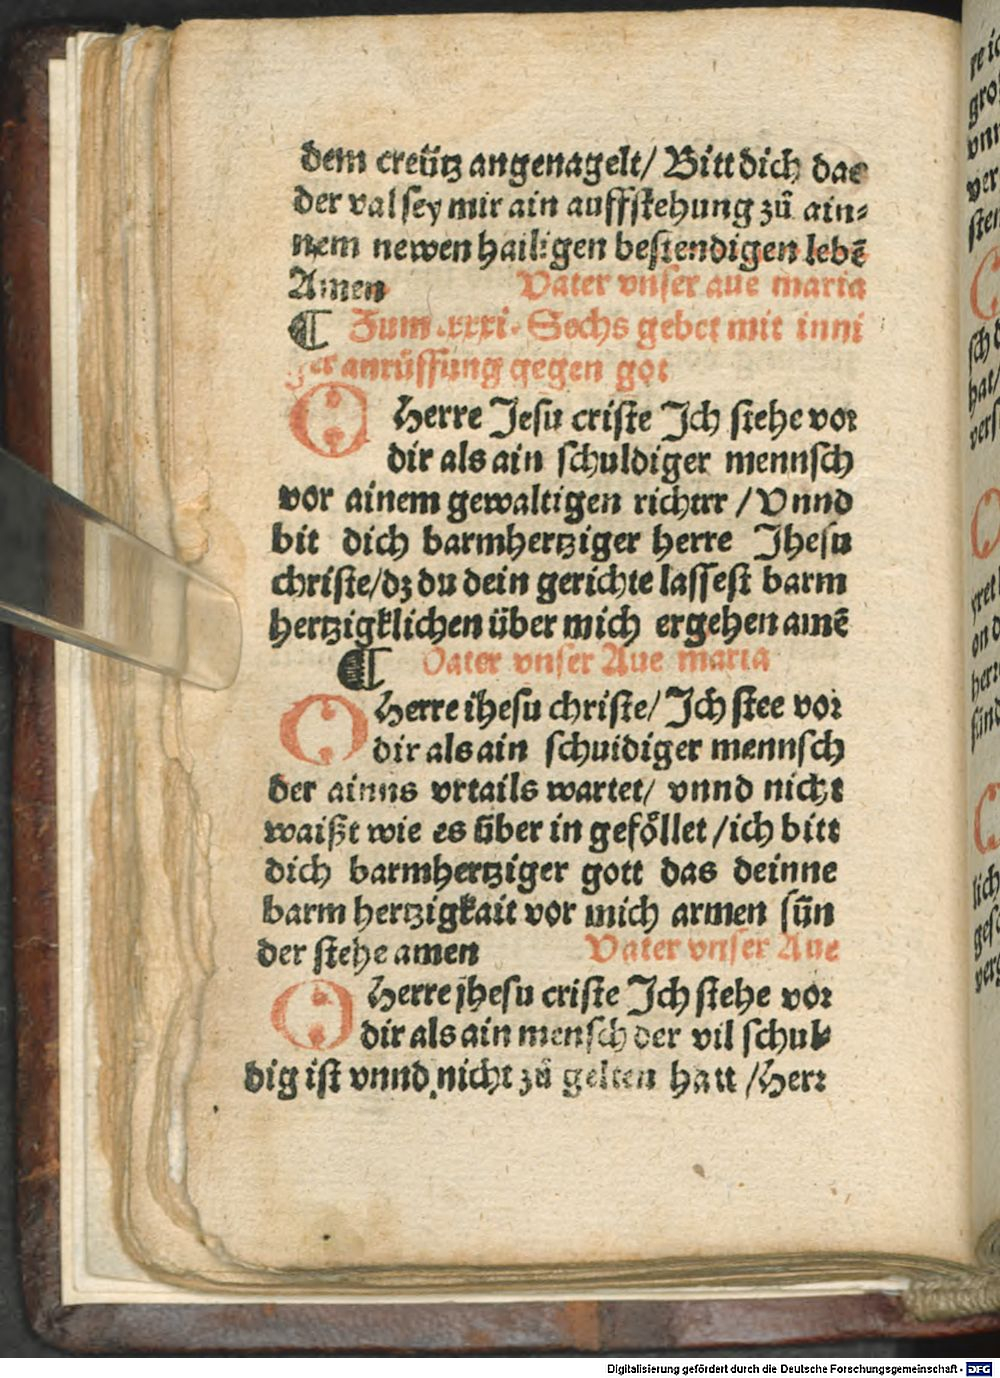 dem creütz angenagelt/ Bitt dich das
der val sey mir ain auffstehung zů ain=
nem newen hailigen bestendigen lebē
Amen Vater vnser aue maria
¶ Zum .xxxi. Sechs gebet mit inni
ger anrüffung gegen got
O Herre Jesu criste Ich stehe vor
dir als ain schuldiger mennsch
vor ainem gewaltigen richtrr / Vnnd
bit dich barmhertziger herre Jhesu
christe/dz du dein gerichte lassest barm
hertzigklichen über mich ergehen amē
¶ Vater vnser Aue maria
O Herre ihesu christe/ Ich stee vor
dir als ain schuidiger mennsch
der ainns vrtails wartet/ vnnd nicht
waißt wie es über in geföllet /ich bitt
dich barmhertziger gott das deinne
barm hertzigkait vor mich armen sün
der stehe amen Vater vnser Aue
O Herre jhesu criste Ich stehe vor
dir als ain mensch der vil schul
dig ist vnnd nicht zů gelten hatt /Herr
Digitalisierung gefördert durch die Deutsche Forschungsgemeinschaft - DFG